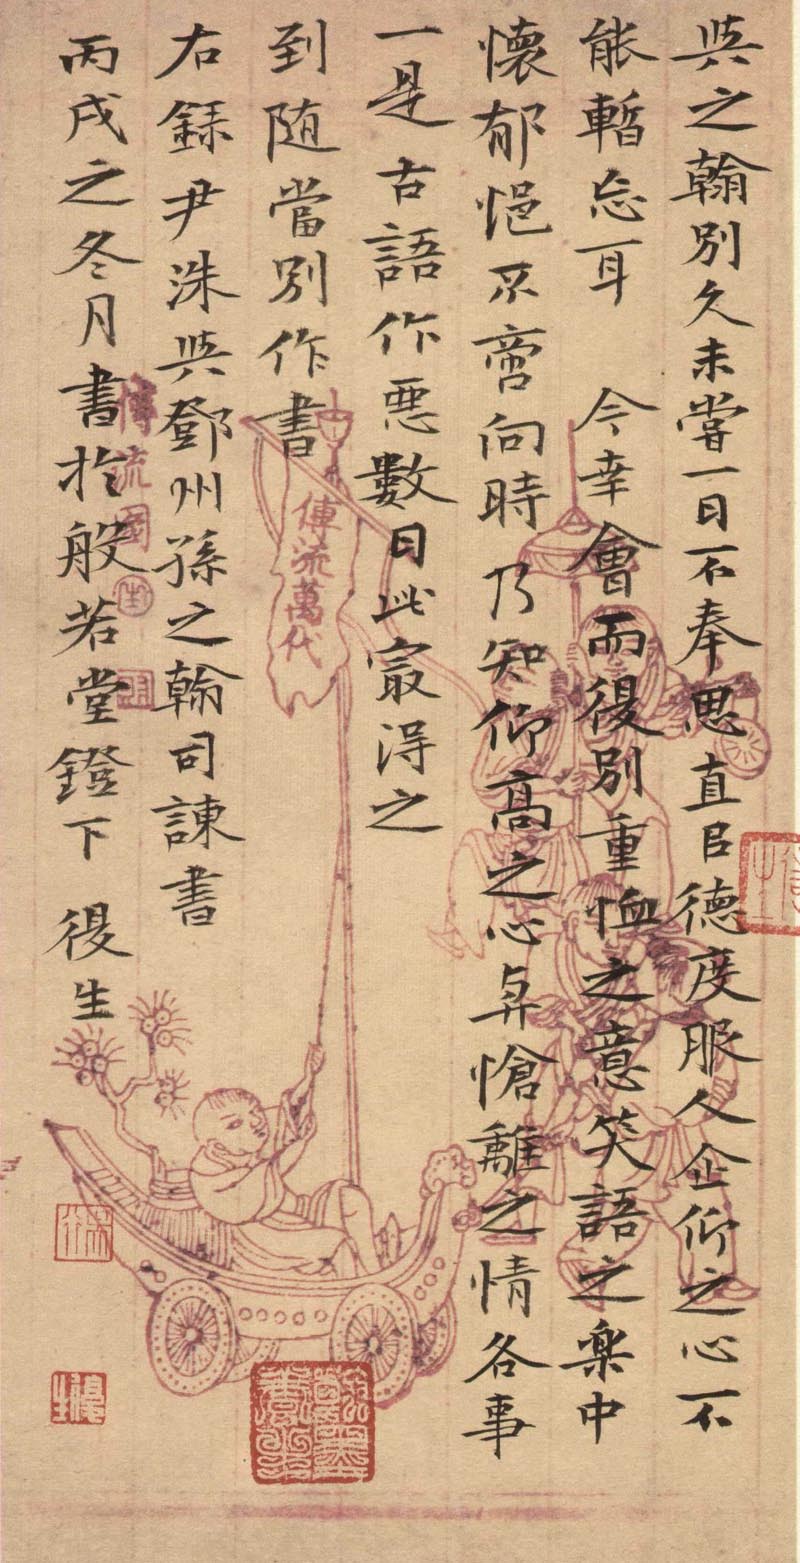 與之翰別久未嘗一日不奉思直以德度服人企仰之心不
能暫忘耳 今幸會而復別重恤之意笑語之樂中
懷郁悒不啻向時乃知仰高之心與愴離之情各事
一是古語作惡數日此寂得之
到随當別作書
右録尹洙與鄧州孫之翰司諫書
丙戌之冬月書於般若堂鐙下 復生
傳流萬代
傳流